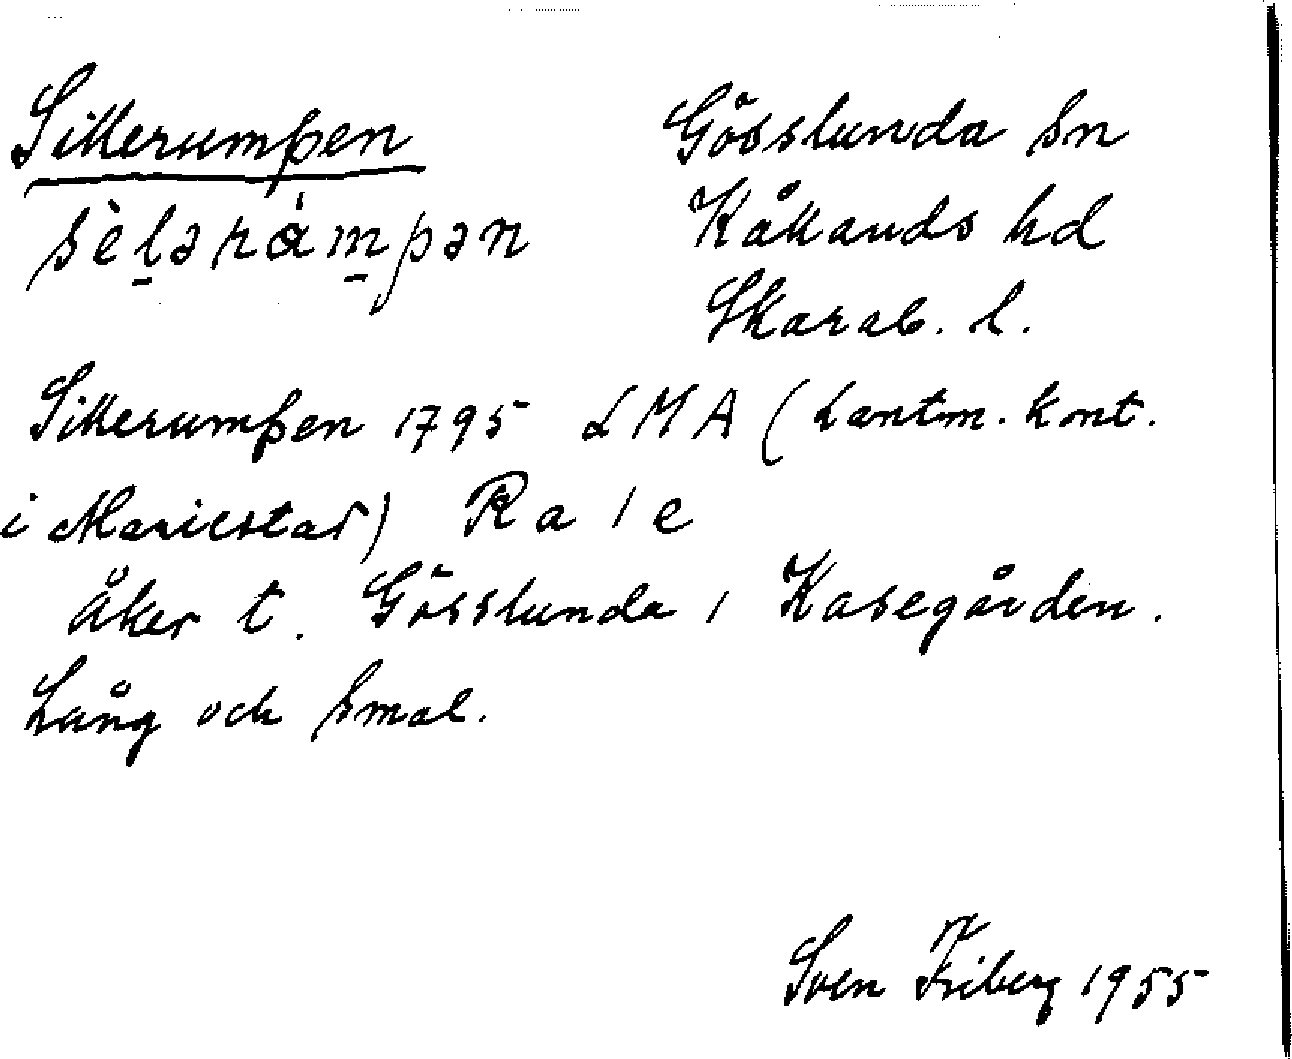 Sillerumpen
Gösslunda sn
sèl̠ərám̠pən
Kållands hd
Skarab. l.
Sillerumpen 1795 LMA (Lantm. kont.
i Mariestad) Ra 1e
åker t. Gösslunda 1 Kasegården.
Lång och smal.
Sven Friberg 1955